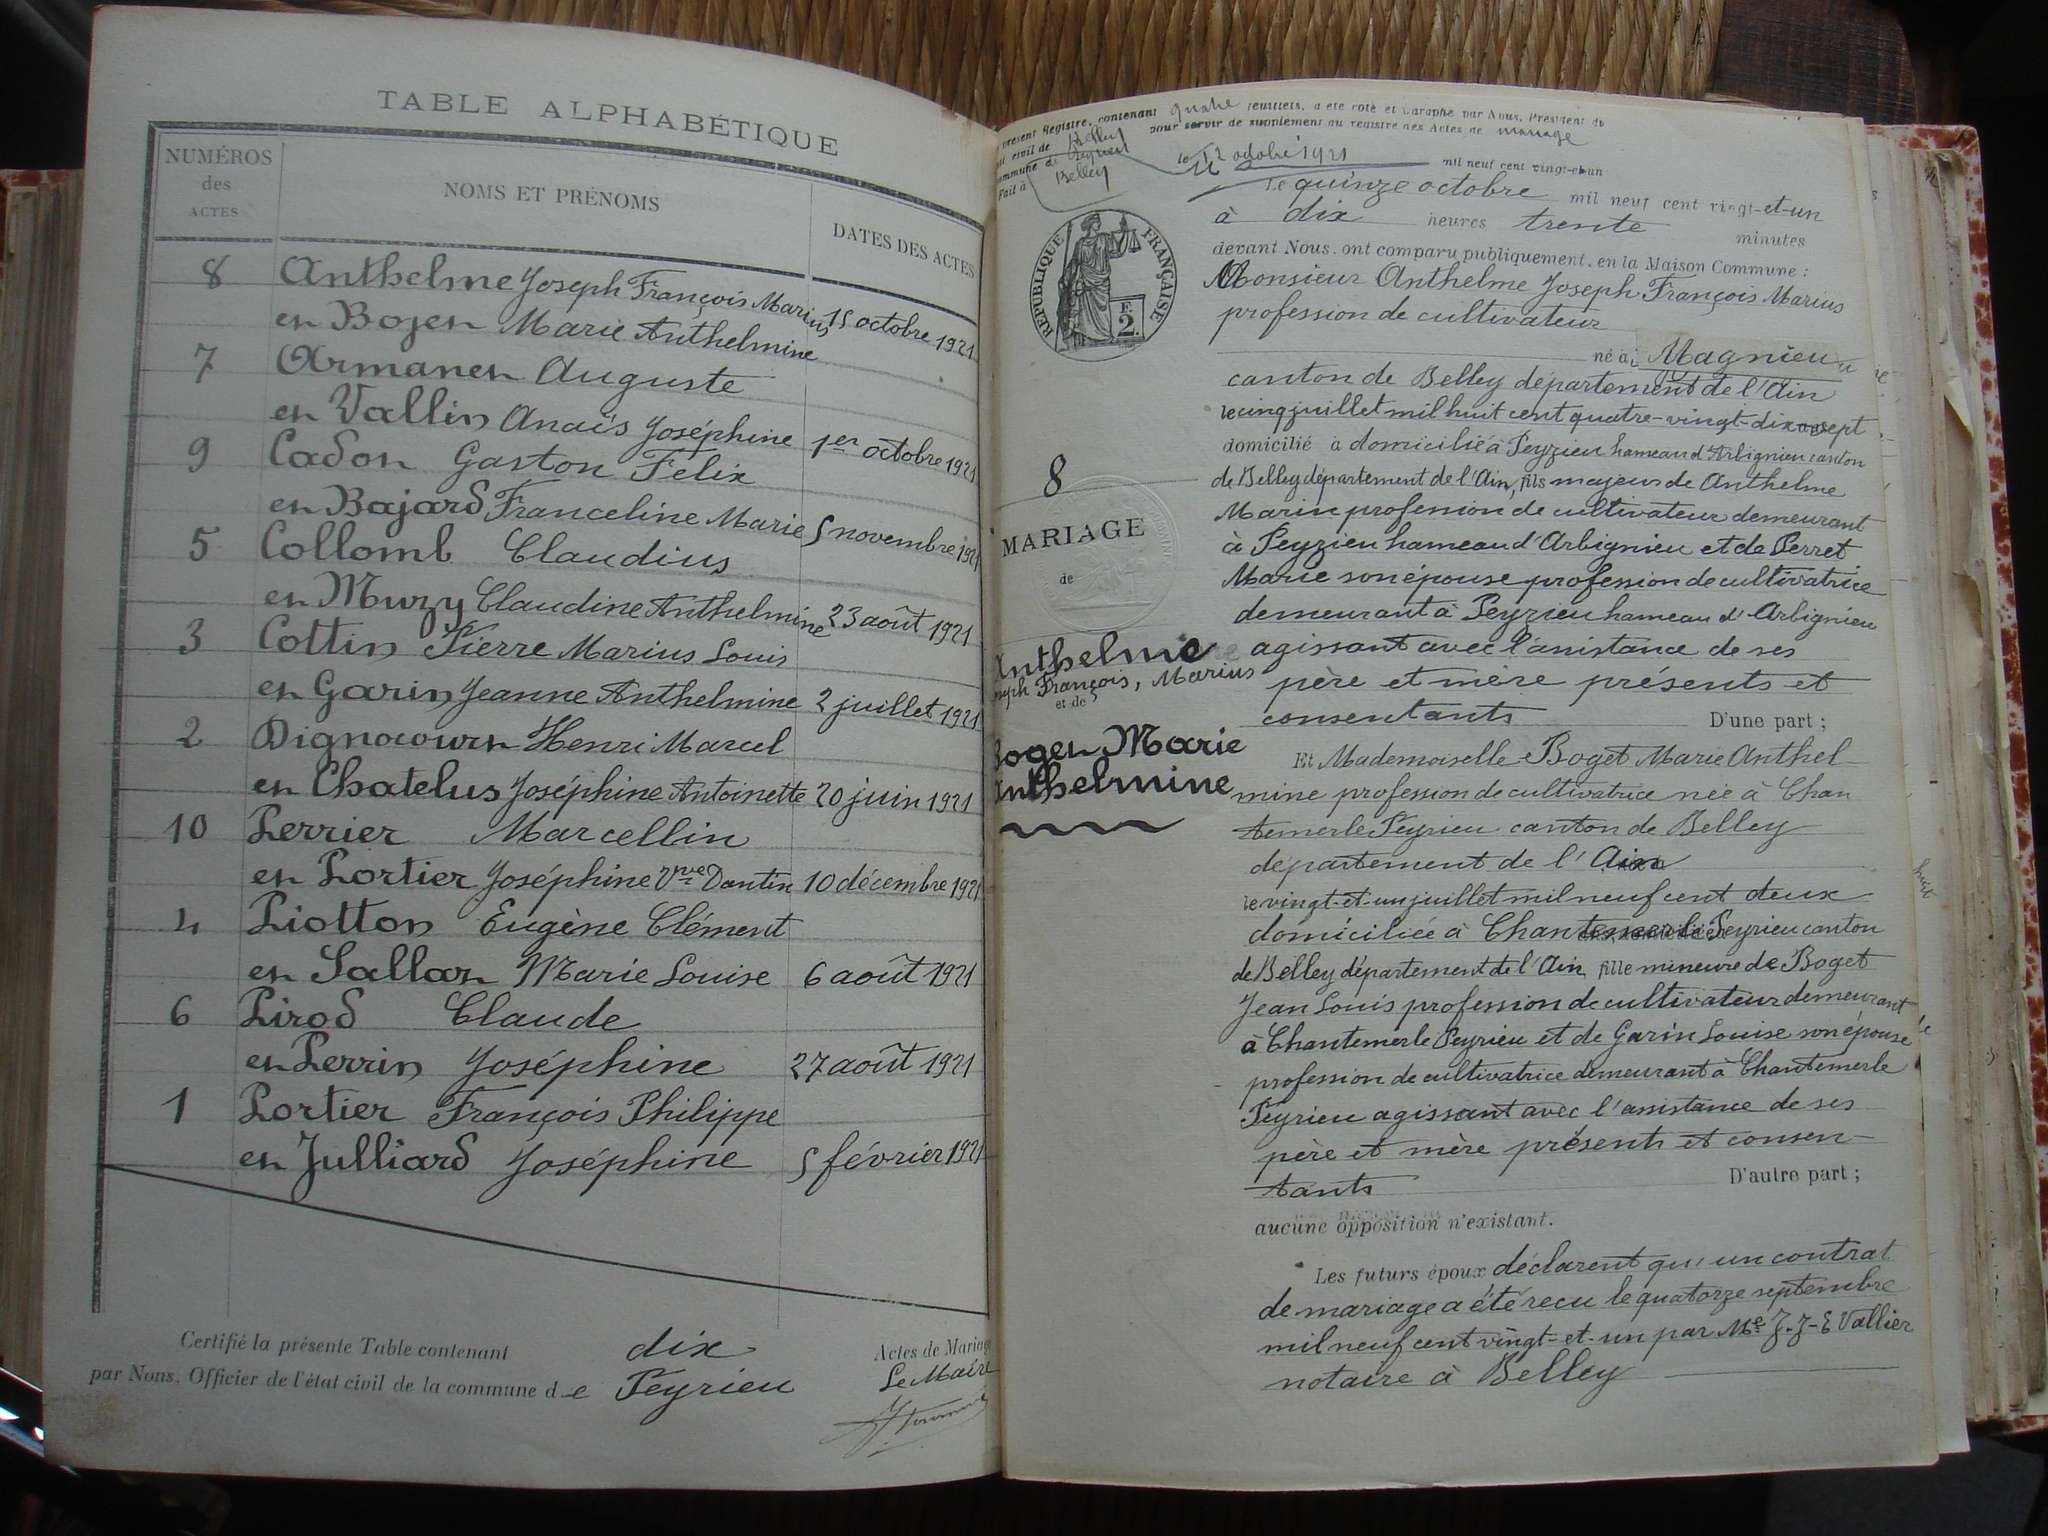 TABLE ALPHABÉTIQUE
NUMÉROS des ACTES
NOMS ET PRÉNOMS
DATES DES ACTES
8 Anthelme Joseph François Marius
en Bozen Marie Anthelmine 15 octobre 1921
7 Armanen Auguste
en Vallin Anaïs Joséphine 1er octobre 1921
9 Cadon Gaston Felix
en Bajard Franceline Marie 5 novembre 1921
5 Collomb Claudius
en Muzy Claudine Anthelmine 23 août 1921
3 Cottin Pierre Marius Louis
en Garin Jeanne Anthelmine 2 juillet 1921
2 Dignocourn Henri Marcel
en Chatelus Joséphine Antoinette 20 juin 1921
10 Perrier Marcellin
en Portier Joséphine Vve Dantin 10 décembre 1921
4 Piotton Eugène Clément
en Sallan Marie Louise 6 août 1921
6 Pirod Claude
en Perrin Joséphine 27 août 1921
1 Portier François Philippe
en Julliard Joséphine 5 février 1921
Certifié la présente Table contenant dix Actes de Mariage
par Nous, Officier de l'état civil de la commune de Peyrieu Le Maire
présent Registre, contenant quatre feuillets, a été coté et paraphé par Nous, Président du
civil de Belley pour servir de supplément au registre des Actes de mariage
commune de
Fait à Belley le 12 octobre 1921 mil neuf cent vingt-et-un
Le quinze octobre mil neuf cent vingt-et-un
à dix heures trente minutes
devant Nous, ont comparu publiquement, en la Maison Commune :
Monsieur Anthelme Joseph François Marius
profession de cultivateur
né à Magnieu
canton de Belley département de l'Ain
le cinq juillet mil huit cent quatre-vingt-dix sept
domicilié à domicilié à Peyzieu hameau d'Arbignieu canton
de Belley département de l'Ain, fils majeur de Anthelme
Marin profession de cultivateur demeurant
à Peyzieu hameau d'Arbignieu et de Perret
Marie son épouse profession de cultivatrice
demeurant à Peyzieu hameau d'Arbignieu
agissant avec l'assistance de ses
père et mère présents et
consentants D'une part ;
Et Mademoiselle Boget Marie Anthel-
mine profession de cultivatrice née à Chan
temerle Peyrieu canton de Belley
département de l'Ain
le vingt-et-un juillet mil neuf cent deux
domiciliée à Chantemerle Peyrieu canton
de Belley département de l'Ain fille mineure de Boget
Jean Louis profession de cultivateur demeurant
à Chantemerle Peyrieu et de Garin Louise son épouse
profession de cultivatrice demeurant à Chantemerle
Peyrieu agissant avec l'assistance de ses
père et mère présents et consen-
tants D'autre part ;
aucune opposition n'existant.
Les futurs époux déclarent qu'un contrat
de mariage a été reçu le quatorze septembre
mil neuf cent vingt-et-un par Me J-J-E Vallier
notaire à Belley
RÉPUBLIQUE FRANÇAISE
F. 2.
8
MARIAGE
de
Anthelme
Joseph François, Marius
et de
Bogen Marie
Anthelmine